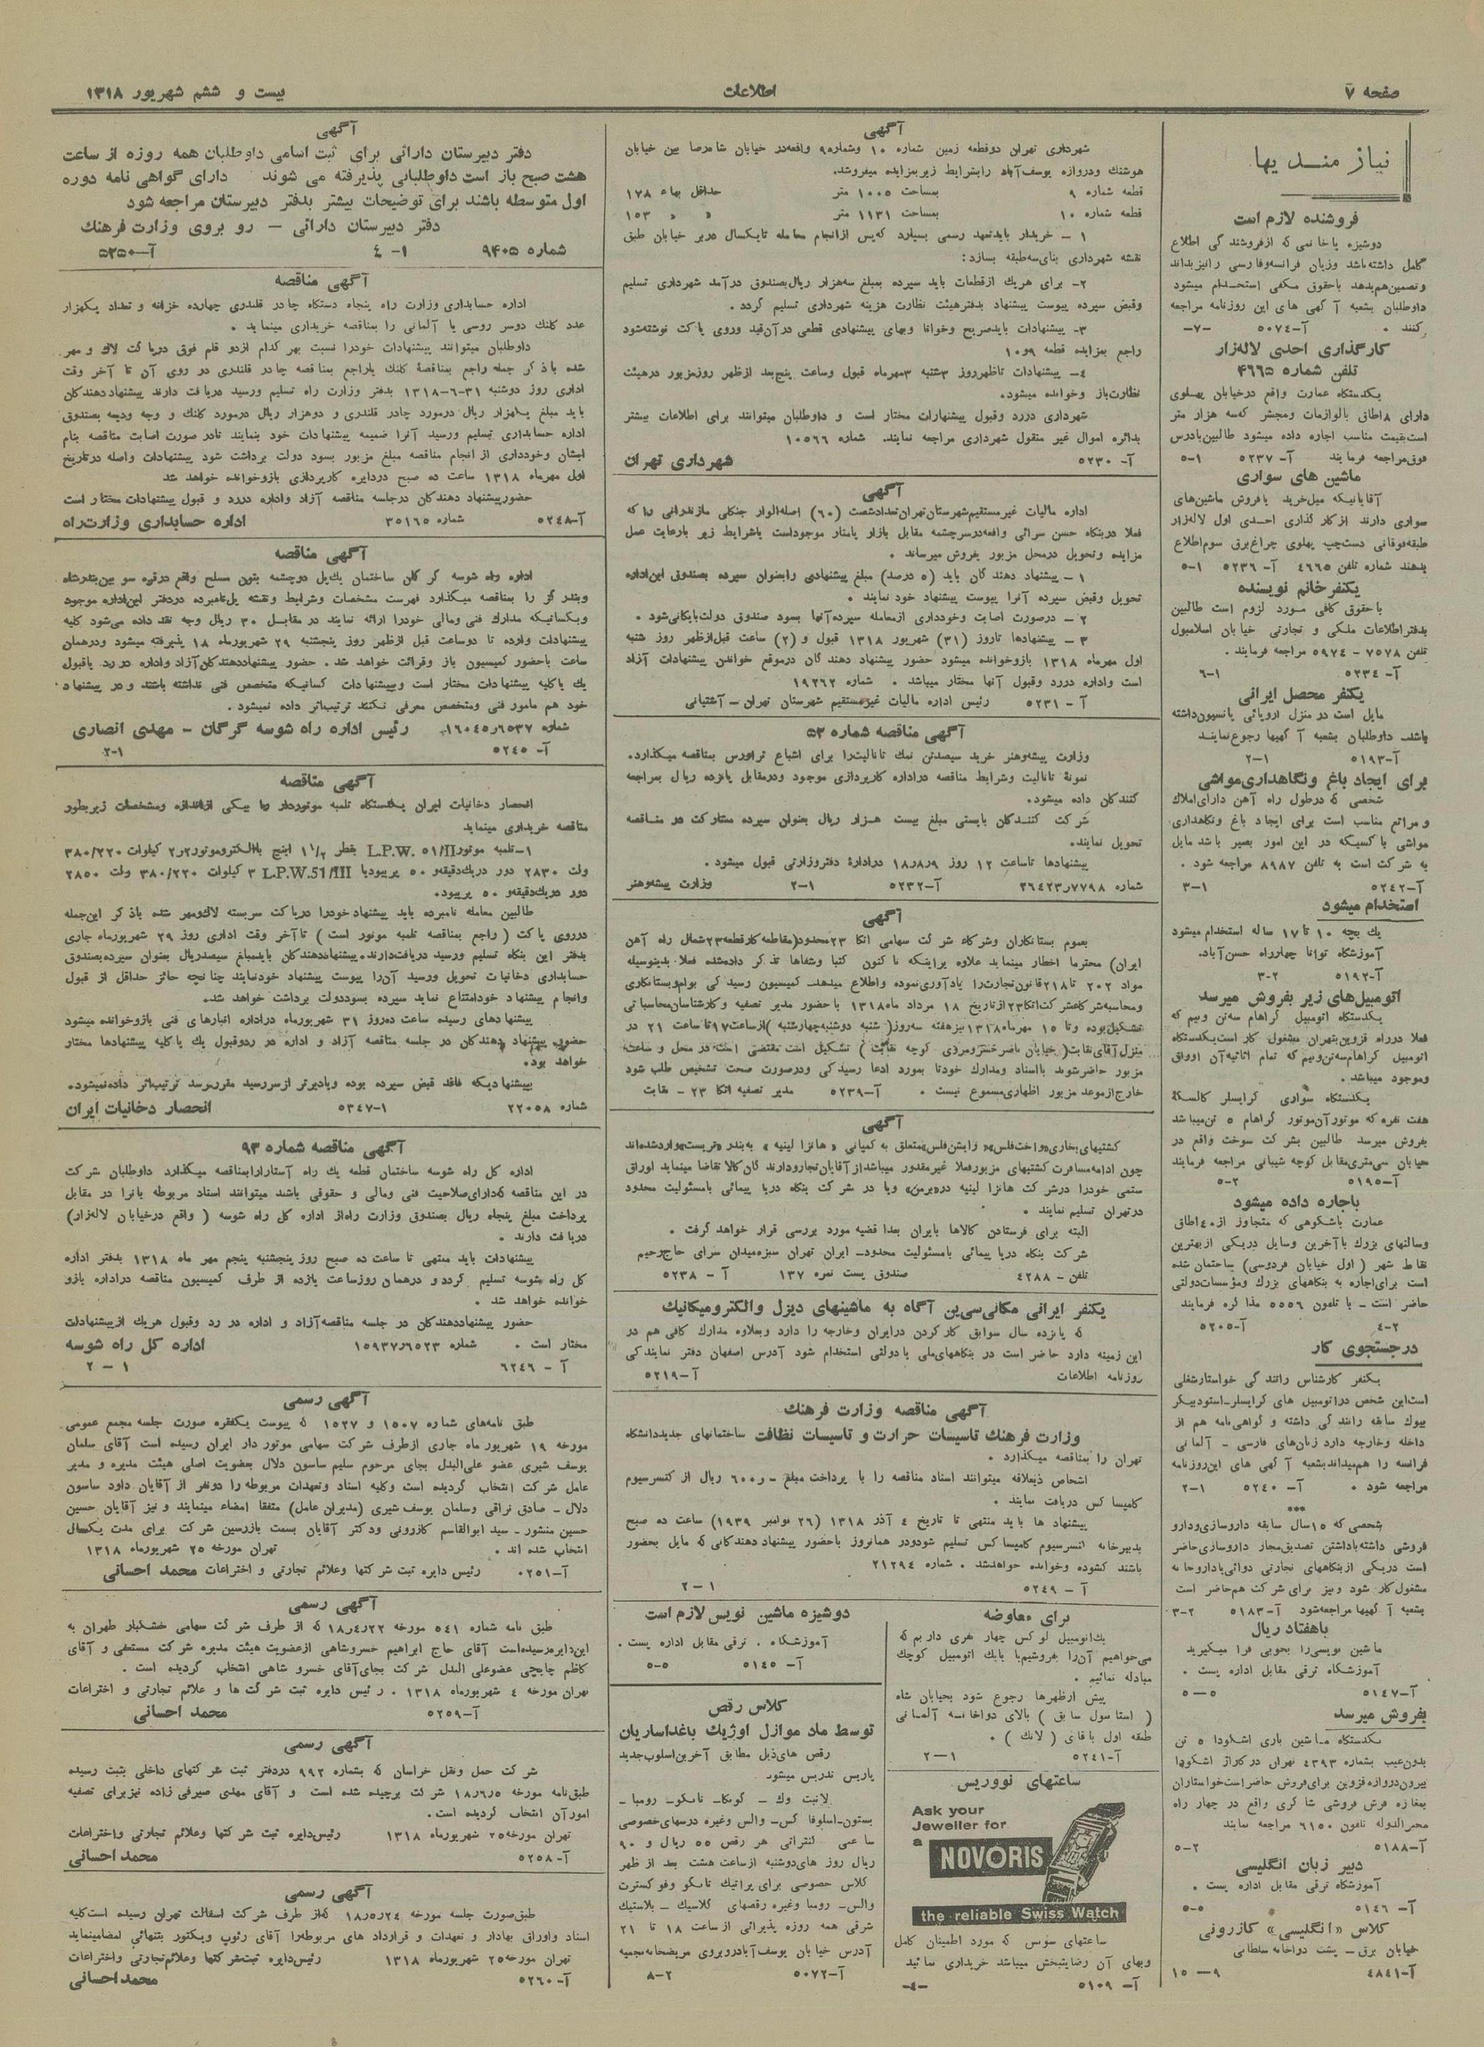 صفحه ۷
اطلاعات
بیست و ششم شهریور ۱۳۱۸
نیازمندیها
فروشنده لازم است
دوشیزه یا خانمی که از فروشندگی اطلاع
کامل داشته باشد وزبان فرانسه وفارسی را نیز بداند
وتضمین هم بدهد باحقوق مکفی استخدام میشود
داوطلبان بشعبه آگهی های این روزنامه مراجعه
کنند . آ-۵۰۷۴ -۷-
کارگذاری احدی لاله‌زار
تلفن شماره ۴۶۶۵
یکدستگاه عمارت واقع درخیابان پهلوی
دارای ۸ اطاق بالوازمات ومجشر که سه هزار متر
است بقیمت مناسب اجاره داده میشود طالبین بادرس
فوق مراجعه فرمایند آ- ۵۲۳۷ ۱-۵
ماشین های سواری
آقایانیکه میل خرید یا فروش ماشین‌های
سواری دارند از کارگذاری احدی اول لاله‌زار
طبقه فوقانی دست چپ پهلوی چراغ برق سوم اطلاع
بدهند شماره تلفن ۴۶۶۵ آ- ۵۲۳۶ ۱-۵
یکنفر خانم نویسنده
با حقوق کافی مورد لزوم است طالبین
بدفتر اطلاعات ملکی و تجارتی خیابان اسلامبول
تلفن ۷۵۷۸ - ۵۹۷۴ مراجعه فرمایند .
آ- ۵۲۳۴ ۱-۶
یکنفر محصل ایرانی
مایل است در منزل اروپائی پانسیون داشته
باشد. داوطلبان بشعبه آگهیها رجوع نمایند
آ-۵۱۹۳ ۱-۲
برای ایجاد باغ ونگاهداری مواشی
شخصی که در طول راه آهن دارای املاک
و مراتع مناسب است برای ایجاد باغ ونگاهداری
مواشی با کسیکه در این امور بصیر باشد مایل
به شرکت است به تلفن ۸۹۸۷ مراجعه شود .
آ-۵۲۴۲ ۱-۳
استخدام میشود
یک بچه ۱۰ تا ۱۷ ساله استخدام میشود
آموزشگاه توانا چهارراه حسن آباد.
آ-۵۱۹۲ ۲-۳
اتومبیل‌های زیر بفروش میرسد
یکدستگاه اتومبیل گراهام سه تن ونیم که
فعلا در راه قزوین بتهران مشغول کار است یکدستگاه
اتومبیل گراهام سه تن ونیم که تمام اثاثیه آن اوراق
وموجود میباشد .
یکدستگاه سواری کرایسلر کالسکهٔ
هفت نفره که موتور آن موتور گراهام ۵ تن میباشد
بفروش میرسد طالبین بشرکت سوخت واقع در
خیابان سی متری مقابل کوچه شیبانی مراجعه فرمایند
آ-۵۱۹۵ ۲-۵
باجاره داده میشود
عمارت باشکوهی که متجاوز از ۴۰ اطاق
وسالنهای بزرگ با آخرین وسایل دریکی از بهترین
نقاط شهر (اول خیابان فردوسی) ساختمان شده
است برای اجاره به بنگاههای بزرگ ومؤسسات دولتی
حاضر است - با تلفون ۵۵۵۶ مذاکره فرمایند
۲-۴ آ-۵۲۰۵
در جستجوی کار
یکنفر کارشناس رانندگی خواستار شغلی
است این شخص در اتومبیل های کرایسلر-استودبیکر
بیوک سابقه رانندگی داشته و گواهی نامه هم از
داخله وخارجه دارد زبان‌های فارسی - آلمانی
فرانسه را هم میداند بشعبه آگهی های این روزنامه
مراجعه شود . آ- ۵۲۴۰ ۱-۲
***
شخصی که ۱۵ سال سابقه داروسازی ودارو
فروشی داشته باداشتن تصدیق مجاز داروسازی حاضر
است دریکی از بنگاههای تجارتی دوائی یا داروخانه
مشغول کار شود ونیز برای شرکت هم حاضر است
بشعبه آگهیها مراجعه شود آ-۵۱۸۳ ۲-۳
باهفتاد ریال
ماشین نویسی را بخوبی فرا میگیرید
آموزشگاه ترقی مقابل اداره پست .
آ-۵۱۴۷ ۵-۵
بفروش میرسد
یکدستگاه ماشین باری اشکودا ۵ تن
بدون عیب بشماره ۴۳۹۳ تهران در گاراژ اشکودا
بیرون دروازه قزوین برای فروش حاضر است خواستاران
بمغازه فرش فروشی شاکری واقع در چهارراه
مخبرالدوله تلفون ۶۱۵۰ مراجعه نمایند
آ-۵۱۸۸ ۲-۵
دبیر زبان انگلیسی
آموزشگاه ترقی مقابل اداره پست .
آ-۵۱۴۶ ۵-۵
کلاس «انگلیسی» کازرونی
خیابان برق - پشت دواخانه سلطانی
آ-۴۸۴۱ ۹-۱۵
آگهی
شهرداری تهران دوقطعه زمین شماره ۱۰ وشماره ۹ واقعه در خیابان شاهرضا بین خیابان
هوشنگ ودروازه یوسف آباد را بشرایط زیر بمزایده میفروشد.
قطعه شماره ۹ بمساحت ۱۰۰۵ متر حداقل بهاء ۱۷۸
قطعه شماره ۱۰ بمساحت ۱۱۳۱ متر » » ۱۵۳
۱ - خریدار باید تعهد رسمی بسپارد که پس از انجام معامله تا یکسال در بر خیابان طبق
نقشه شهرداری بنای سه طبقه بسازد:
۲- برای هریک از قطعات باید سپرده بمبلغ سه هزار ریال بصندوق درآمد شهرداری تسلیم
وقبض سپرده پیوست پیشنهاد بدفتر هیئت نظارت هزینه شهرداری تسلیم گردد.
۳- پیشنهادات باید صریح وخوانا وبهای پیشنهادی قطعی در آن قید وروی پاکت نوشته شود
راجع بمزایده قطعه ۹ و ۱۰
۴- پیشنهادات تا ظهر روز ۳ شنبه ۳ مهرماه قبول وساعت پنج بعد از ظهر روز مزبور در هیئت
نظارت باز وخوانده میشود.
شهرداری در رد وقبول پیشنهادات مختار است و داوطلبان میتوانند برای اطلاعات بیشتر
بدائره اموال غیر منقول شهرداری مراجعه نمایند. شماره ۱۰۵۶۶
آ- ۵۲۳۰ شهرداری تهران
آگهی
اداره مالیات غیر مستقیم شهرستان تهران تعداد شصت (۶۰) اصله الوار جنگلی مازندرانی را که
فعلا در بنگاه حسن سرائی واقعه در سرچشمه مقابل بازار پامنار موجود است باشرایط زیر بارعایت عمل
مزایده وتحویل در محل مزبور بفروش میرساند .
۱- پیشنهاد دهندگان باید (۵ درصد) مبلغ پیشنهادی را بعنوان سپرده بصندوق این اداره
تحویل وقبض سپرده آنرا پیوست پیشنهاد خود نمایند .
۲ - درصورت اصابت وخودداری از معامله سپرده آنها بسود صندوق دولت بایگانی شود .
۳ - پیشنهادها تا روز (۳۱) شهریور ۱۳۱۸ قبول و (۲) ساعت قبل از ظهر روز شنبه
اول مهرماه ۱۳۱۸ باز وخوانده میشود حضور پیشنهاد دهندگان در موقع خواندن پیشنهادات آزاد
است واداره در رد وقبول آنها مختار میباشد . شماره ۱۹۲۶۲
آ - ۵۲۳۱ رئیس اداره مالیات غیر مستقیم شهرستان تهران - آشتیانی
آگهی مناقصه شماره ۵۲
وزارت پیشه وهنر خرید سیصد تن نمک تانالیت را برای اشباع تراورس بمناقصه میگذارد.
نمونهٔ تانالیت وشرایط مناقصه در اداره کارپردازی موجود ودر مقابل پانزده ریال بمراجعه
کنندگان داده میشود.
شرکت کنندگان بایستی مبلغ بیست هزار ریال بعنوان سپرده مشارکت در مناقصه
تحویل نمایند.
پیشنهادها تا ساعت ۱۲ روز ۱۸٫۸٫۹ در ادارهٔ دفتر وزارتی قبول میشود .
شماره ۲۶۴۲۳٫۷۷۹۸ آ-۵۲۳۲ ۱-۲ وزارت پیشه وهنر
آگهی
بعموم بستانکاران وشرکاء شرکت سهامی اتکا ۲۳ محدود (مقاطعه کار قطعه ۲۳ شمال راه آهن
ایران) محترما اخطار مینماید علاوه براینکه تاکنون کتبا وشفاها تذکر داده شده فعلا بدینوسیله
مواد ۲۰۲ تا ۲۱۸ قانون تجارت را یادآوری نموده واطلاع میدهد. کمیسیون رسیدگی بوام وبستانکاری
ومحاسبه شرکاء شرکت اتکا ۲۳ از تاریخ ۱۸ مرداد ماه ۱۳۱۸ با حضور مدیر تصفیه وکارشناسان محاسباتی
تشکیل بوده وتا ۱۵ مهرماه ۱۳۱۸ نیز هفته سه روز (شنبه دوشنبه چهارشنبه) از ساعت ۱۷ تا ساعت ۲۱ در
منزل آقای نقابت (خیابان ناصر خسرو مروی کوچه نقابت) تشکیل است مقتضی است در محل و ساعت
مزبور حاضر شوند با اسناد ومدارک خود تا بمورد ادعا رسیدگی ودر صورت صحت تشخیص طلب شود
خارج از موعد مزبور اظهاری مسموع نیست . آ-۵۲۳۹ مدیر تصفیه اتکا ۲۳ - نقابت
آگهی
کشتیهای بخاری «واخت فلس» و «راینشن فلس» متعلق به کمپانی «هانزا لینیه» به بندر «تریست» وارد شده اند
چون ادامه مسافرت کشتیهای مزبور فعلا غیر مقدور میباشد از آقایان تجار ودارندگان کالا تقاضا مینماید اوراق
ستمی خود را در شرکت هانزا لینیه در «برمن» ویا در شرکت بنگاه دریا پیمائی بامسئولیت محدود
در تهران تسلیم نمایند .
البته برای فرستادن کالاها بایران بعدا قضیه مورد بررسی قرار خواهد گرفت .
شرکت بنگاه دریا پیمائی بامسئولیت محدود- ایران تهران سبزه میدان سرای حاج رحیم
تلفن - ۴۲۸۸ صندوق پست نمره ۱۳۷ آ - ۵۲۳۸
یکنفر ایرانی مکانی‌سی‌ین آگاه به ماشینهای دیزل والکترومیکانیک
که پانزده سال سوابق کار کردن در ایران وخارجه را دارد وبعلاوه مدارک کافی هم در
این زمینه دارد حاضر است در بنگاههای ملی یا دولتی استخدام شود آدرس اصفهان دفتر نمایندگی
روزنامه اطلاعات آ-۵۲۱۹
آگهی مناقصه وزارت فرهنگ
وزارت فرهنگ تاسیسات حرارت و تاسیسات نظافت ساختمانهای جدید دانشگاه
تهران را بمناقصه میگذارد.
اشخاص ذیعلاقه میتوانند اسناد مناقصه را با پرداخت مبلغ -ر۶۰۰ ریال از کنسرسیوم
کامپساکس دریافت نمایند .
پیشنهاد ها باید منتهی تا تاریخ ۴ آذر ۱۳۱۸ (۲۶ نوامبر ۱۹۳۹) ساعت ده صبح
بدبیرخانه کنسرسیوم کامپساکس تسلیم شود ودر همانروز باحضور پیشنهاد دهندگانی که مایل بحضور
باشند گشوده وخوانده خواهد شد . شماره ۲۱۲۹۴
آ - ۵۲۴۹ ۱-۲
برای معاوضه
یک اتومبیل لوکس چهار نفری داریم که
می‌خواهیم آن را بفروشیم یا بایک اتومبیل کوچک
مبادله نمائیم .
پیش از ظهرها رجوع شود بخیابان شاه
(استامبول سابق) بالای دواخانه آلمانی
طبقه اول باقای (لانک) .
آ-۵۲۴۱ ۱-۲
ساعتهای نووریس
Ask your
Jeweller for
a
NOVORIS
the reliable Swiss Watch
ساعتهای سویس که مورد اطمینان کامل
وبهای آن رضایتبخش میباشد خریداری نمائید
آ- ۵۱۰۹ -۴-
دوشیزه ماشین نویس لازم است
آموزشگاه . ترقی مقابل اداره پست .
آ- ۵۱۴۵ ۵-۵
کلاس رقص
توسط مادموازل اوژنیک باغداساریان
رقص های ذیل مطابق آخرین اسلوب جدید
پاریس تدریس میشود
لانبت وک - کونکا- تانگو - رومبا -
بستون-اسلوفاکس- والس وغیره درسهای خصوصی
ساعتی کنتراتی هر رقص ۵۵ ریال و ۹۰
ریال روز های دوشنبه از ساعت هشت بعد از ظهر
کلاس خصوصی برای پراتیک تانگو وفوکسترت
والس- رومبا وغیره رقصهای کلاسیک - بلاستیک
شرقی همه روزه پذیرائی از ساعت ۱۸ تا ۲۱
آدرس خیابان یوسف آباد روبروی مریضخانه نجمیه
آ-۵۰۷۲ ۲-۸
آگهی
دفتر دبیرستان دارائی برای ثبت اسامی داوطلبان همه روزه از ساعت
هشت صبح باز است داوطلبانی پذیرفته می شوند دارای گواهی نامه دوره
اول متوسطه باشند برای توضیحات بیشتر بدفتر دبیرستان مراجعه شود
دفتر دبیرستان دارائی - رو بروی وزارت فرهنگ
شماره ۹۴۰۵ ۱-۴ آ-۵۲۵۰
آگهی مناقصه
اداره حسابداری وزارت راه پنجاه دستگاه چادر قلندری چهارده خزانه و تعداد یکهزار
عدد کلنگ دوسر روسی یا آلمانی را بمناقصه خریداری مینماید .
داوطلبان میتوانند پیشنهادات خودرا نسبت بهر کدام از دو قلم فوق در پاکت لاک و مهر
شده باذکر جمله راجع بمناقصهٔ کلنگ یا راجع بمناقصه چادر قلندری در روی آن تا آخر وقت
اداری روز دوشنبه ۳۱-۶-۱۳۱۸ بدفتر وزارت راه تسلیم ورسید دریافت دارند پیشنهاد دهندگان
باید مبلغ یکهزار ریال در مورد چادر قلندری و دوهزار ریال در مورد کلنگ و وجه ودیعه بصندوق
اداره حسابداری تسلیم ورسید آنرا ضمیمه پیشنهادات خود بنمایند تا در صورت اصابت مناقصه بنام
ایشان وخودداری از انجام مناقصه مبلغ مزبور بسود دولت برداشت شود پیشنهادات واصله در تاریخ
اول مهرماه ۱۳۱۸ ساعت ده صبح در دایره کارپردازی باز وخوانده خواهد شد
حضور پیشنهاد دهندگان در جلسه مناقصه آزاد واداره در رد و قبول پیشنهادات مختار است
آ-۵۲۴۸ شماره ۳۵۱۶۵ اداره حسابداری وزارت راه
آگهی مناقصه
اداره راه شوسه گرگان ساختمان یک پل دوچشمه بتون مسلح واقع در قره سو بین بندرشاه
وبندرگز را بمناقصه میگذارد فهرست مشخصات وشرایط ونقشه پل نامبرده در دفتر این اداره موجود
وبکسانیکه مدارک فنی ومالی خودرا ارائه نمایند در مقابل ۳۰ ریال وجه نقد داده می‌شود کلیه
پیشنهادات وارده تا دو ساعت قبل از ظهر روز پنجشنبه ۲۹ شهریورماه ۱۸ پذیرفته میشود ودر همان
ساعت باحضور کمیسیون باز وقرائت خواهد شد . حضور پیشنهاد دهندگان آزاد واداره در رد یا قبول
یک یا کلیه پیشنهادات مختار است وپیشنهادات کسانیکه متخصص فنی نداشته باشند و در پیشنهاد
خود هم مامور فنی ومتخصص معرفی نکنند ترتیب اثر داده نمیشود .
شماره ۱۶۰۴۵٫۶۵۳۷ رئیس اداره راه شوسه گرگان - مهدی انصاری
آ- ۵۲۴۵ ۱-۲
آگهی مناقصه
انحصار دخانیات ایران یکدستگاه تلمبه موتوردار را بیکی از اندازه ومشخصات زیر بطور
مناقصه خریداری مینماید
۱-تلمبه موتور L.P.W. ۵۱/II بقطر ۱ ۱/۲ اینچ باالکتروموتور ۲ر۲ کیلوات ۳۸۰/۲۲۰
ولت ۲۸۳۰ دور در یک دقیقه و ۵۰ پریود یا L.P.W.51/III ۳ کیلوات ۳۸۰/۲۲۰ ولت ۲۸۵۰
دور در یک دقیقه و ۵۰ پریود.
طالبین معامله نامبرده باید پیشنهاد خودرا در پاکت سربسته لاک ومهر شده باذکر این جمله
در روی پاکت (راجع بمناقصه تلمبه موتور است) تا آخر وقت اداری روز ۲۹ شهریورماه جاری
بدفتر این بنگاه تسلیم ورسید دریافت دارند. پیشنهاد دهندگان باید مبلغ سیصد ریال بعنوان سپرده بصندوق
حسابداری دخانیات تحویل ورسید آنرا پیوست پیشنهاد خود نمایند چنانچه حائز حداقل از قبول
وانجام پیشنهاد خود امتناع نماید سپرده بسود دولت برداشت خواهد شد.
پیشنهادهای رسیده ساعت ده روز ۳۱ شهریورماه در اداره انبارهای فنی باز وخوانده میشود
حضور پیشنهاد دهندگان در جلسه مناقصه آزاد و اداره در رد وقبول یک یا کلیه پیشنهادها مختار
خواهد بود.
پیشنهادیکه فاقد قبض سپرده بوده ویا دیرتر از سررسید مقرر برسد ترتیب اثر داده نمیشود.
شماره ۲۲۰۵۸ ۱-۵۲۴۷ انحصار دخانیات ایران
آگهی مناقصه شماره ۹۳
اداره کل راه شوسه ساختمان قطعه یک راه آستارا را بمناقصه میگذارد داوطلبان شرکت
در این مناقصه که دارای صلاحیت فنی ومالی و حقوقی باشند میتوانند اسناد مربوطه بانرا در مقابل
پرداخت مبلغ پنجاه ریال بصندوق وزارت راه از اداره کل راه شوسه (واقع در خیابان لاله‌زار)
دریافت دارند .
پیشنهادات باید منتهی تا ساعت ده صبح روز پنجشنبه پنجم مهر ماه ۱۳۱۸ بدفتر اداره
کل راه شوسه تسلیم گردد و در همان روز ساعت یازده از طرف کمیسیون مناقصه در اداره باز و
خوانده خواهد شد .
حضور پیشنهاد دهندگان در جلسه مناقصه آزاد و اداره در رد وقبول هریک از پیشنهادات
مختار است . شماره ۱۵۹۳۷٫۶۵۲۳ اداره کل راه شوسه
آ - ۶۲۴۶ ۱ - ۲
آگهی رسمی
طبق نامه‌های شماره ۱۵۰۷ و ۱۵۲۷ که پیوست یکفقره صورت جلسه مجمع عمومی
مورخه ۱۹ شهریور ماه جاری از طرف شرکت سهامی موتوردار ایران رسیده است آقای سلمان
یوسف شیری عضو علی‌البدل بجای مرحوم سلیم ساسون دلال بعضویت اصلی هیئت مدیره و مدیر
عامل شرکت انتخاب گردیده است وکلیه اسناد وتعهدات مربوطه را دو نفر از آقایان داود ساسون
دلال - صادق نراقی وسلمان یوسف شیری (مدیران عامل) متفقا امضاء مینمایند و نیز آقایان حسین
حسین منشور - سید ابوالقاسم کازرونی ودکتر آقایان بسمت بازرسین شرکت برای مدت یکسال
انتخاب شده اند . تهران مورخه ۲۵ شهریورماه ۱۳۱۸
آ-۰۲۵۱ رئیس دایره ثبت شرکتها وعلائم تجارتی و اختراعات محمد احسانی
آگهی رسمی
طبق نامه شماره ۵۴۱ مورخه ۱۸٫۴٫۲۲ که از طرف شرکت سهامی خشکبار طهران به
این دایره رسیده است آقای حاج ابراهیم خسروشاهی از عضویت هیئت مدیره شرکت مستعفی و آقای
کاظم چایچی عضو علی البدل شرکت بجای آقای خسرو شاهی انتخاب گردیده است .
تهران مورخه ۴ شهریورماه ۱۳۱۸ . رئیس دایره ثبت شرکت ها و علائم تجارتی و اختراعات
آ-۵۲۵۹ محمد احسانی
آگهی رسمی
شرکت حمل ونقل خراسان که بشماره ۹۹۲ در دفتر ثبت شرکتهای داخلی بثبت رسیده
طبق نامه مورخه ۱۸٫۶٫۵ شرکت برچیده شده است و آقای مهدی صیرفی زاده نیز برای تصفیه
امور آن انتخاب گردیده است.
تهران مورخه ۲۵ شهریورماه ۱۳۱۸ رئیس دایره ثبت شرکتها وعلائم تجارتی واختراعات
آ-۵۲۵۸ محمد احسانی
آگهی رسمی
طبق صورت جلسه مورخه ۱۸٫۵٫۲۴ که از طرف شرکت اسفالت تهران رسیده است کلیه
اسناد واوراق بهادار و تعهدات و قرارداد های مربوطه را آقای رئوب ویکتور بتنهائی امضا مینماید
تهران مورخه ۲۵ شهریورماه ۱۳۱۸ رئیس دایره ثبت شرکتها وعلائم تجارتی واختراعات
آ-۵۲۶۰ محمد احسانی